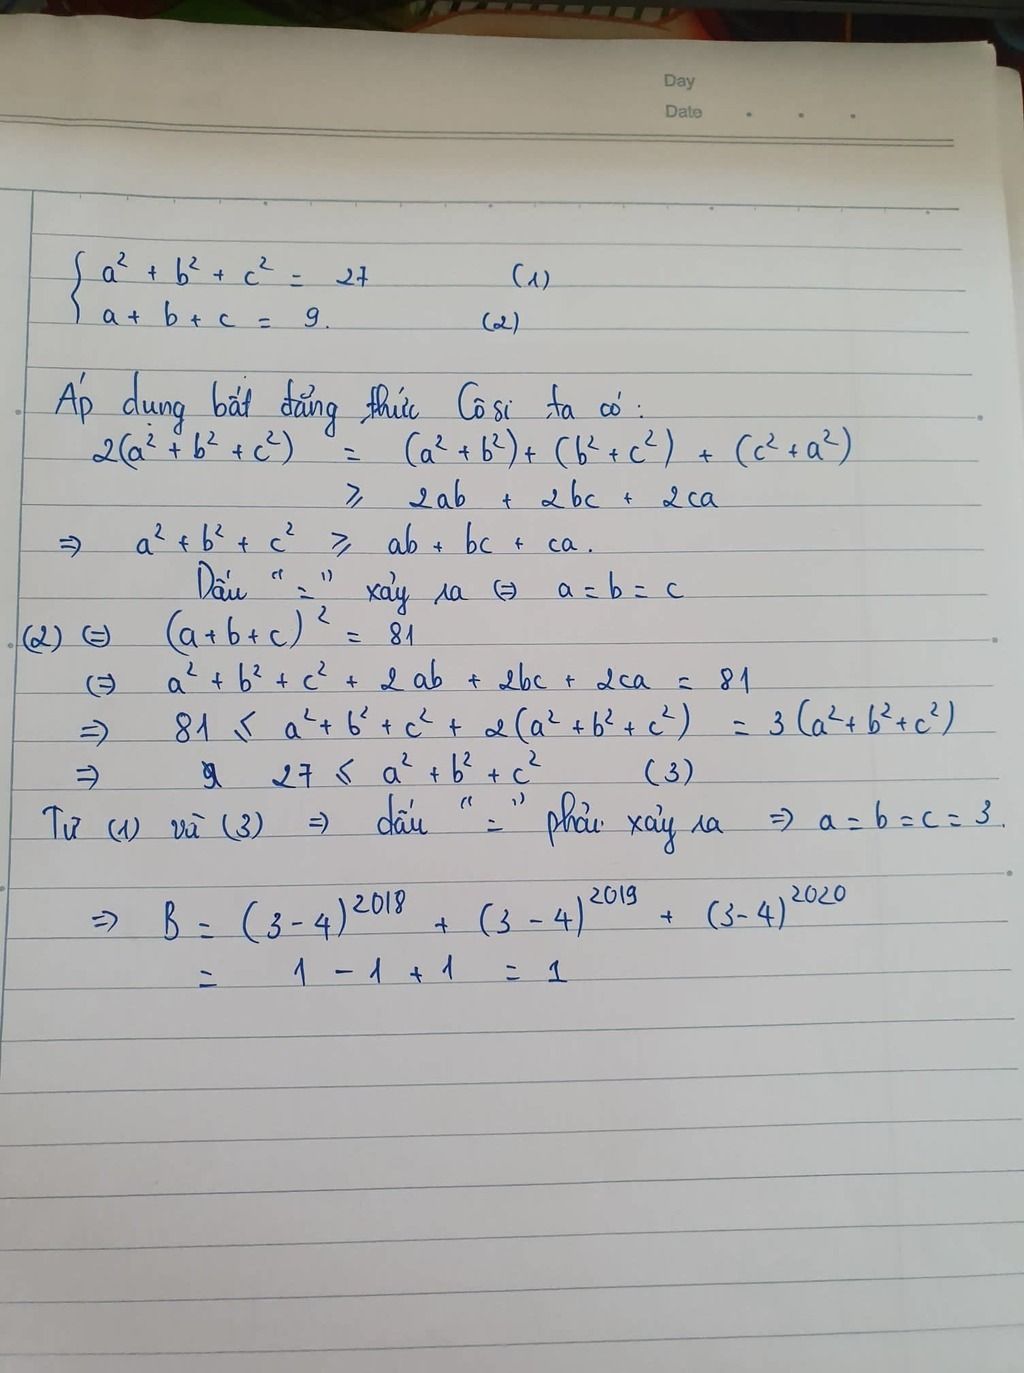 Day
Date . . .
{ a² + b² + c² = 27 (1)
a + b + c = 9. (2)
Áp dung bất đẳng thức Côsi ta có :
2(a² + b² + c²) = (a² + b²) + (b² + c²) + (c² + a²)
⩾ 2ab + 2bc + 2ca
⇒ a² + b² + c² ⩾ ab + bc + ca.
Dấu " = " xảy ra ⇔ a = b = c
(2) ⇔ (a + b + c)² = 81
⇔ a² + b² + c² + 2ab + 2bc + 2ca = 81
⇒ 81 ⩽ a² + b² + c² + 2(a² + b² + c²) = 3(a² + b² + c²)
⇒ 27 ⩽ a² + b² + c² (3)
Từ (1) và (3) ⇒ dấu " = " phải xảy ra ⇒ a = b = c = 3.
⇒ B = (3 - 4)²⁰¹⁸ + (3 - 4)²⁰¹⁹ + (3 - 4)²⁰²⁰
= 1 - 1 + 1 = 1